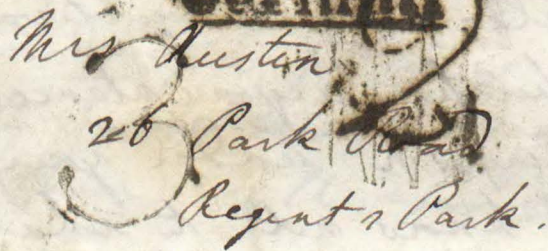 Germany
Mrs Austin
26 Park Road
Regent's Park.